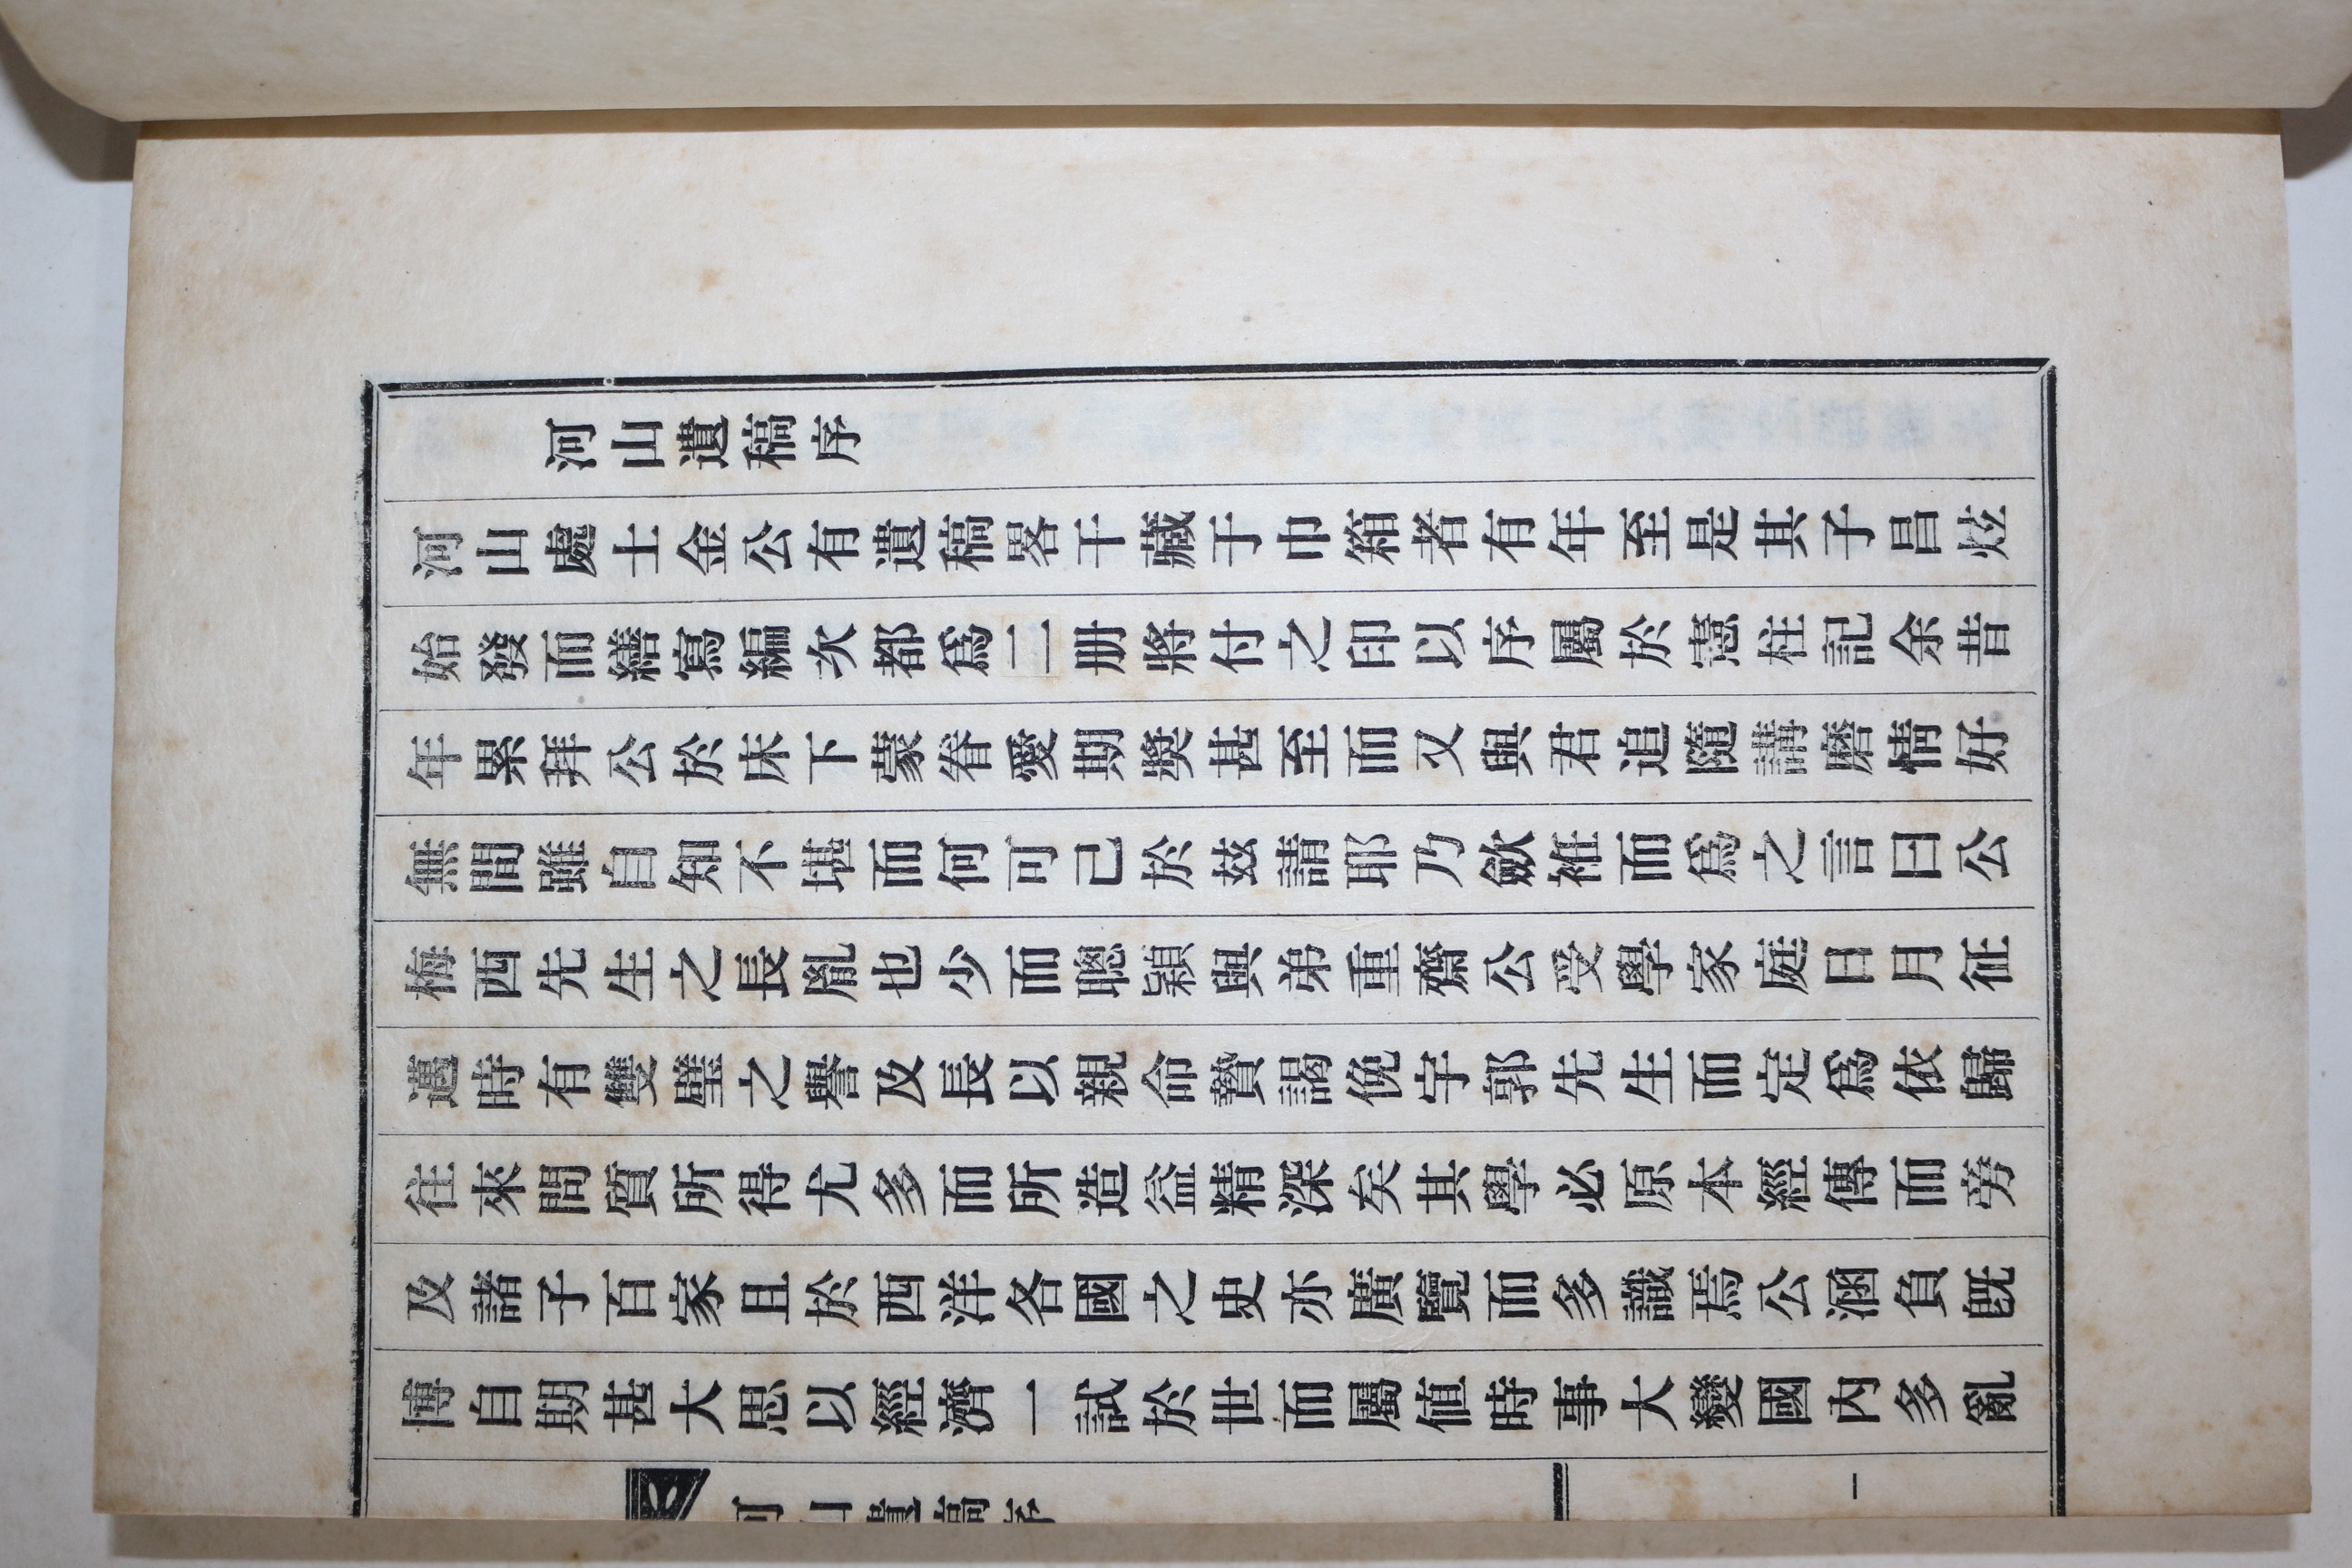 河山遺稿序
河山處士金公有遺稿畧干藏于巾箱者有年至是其子昌炫
始發而繕寫編次都爲二册將付之印以序屬於憲柱記余昔
年累拜公於床下蒙眷愛期奬甚至而又與君追隨講磨情好
無間雖自知不堪而何可已於玆請耶乃歛袵而爲之言曰公
梅西先生之長胤也少而聰穎與弟重齋公受學家庭日月征
邁時有雙璧之譽及長以親命贄謁俛宇郭先生而定爲依歸
往來問質所得尤多而所造益精深矣其學必原本經傳而旁
及諸子百家且於西洋各國之史亦廣覽而多識焉公涵負旣
博自期甚大思以經濟一試於世而屬値時事大變國內多亂
河山遺稿序
一